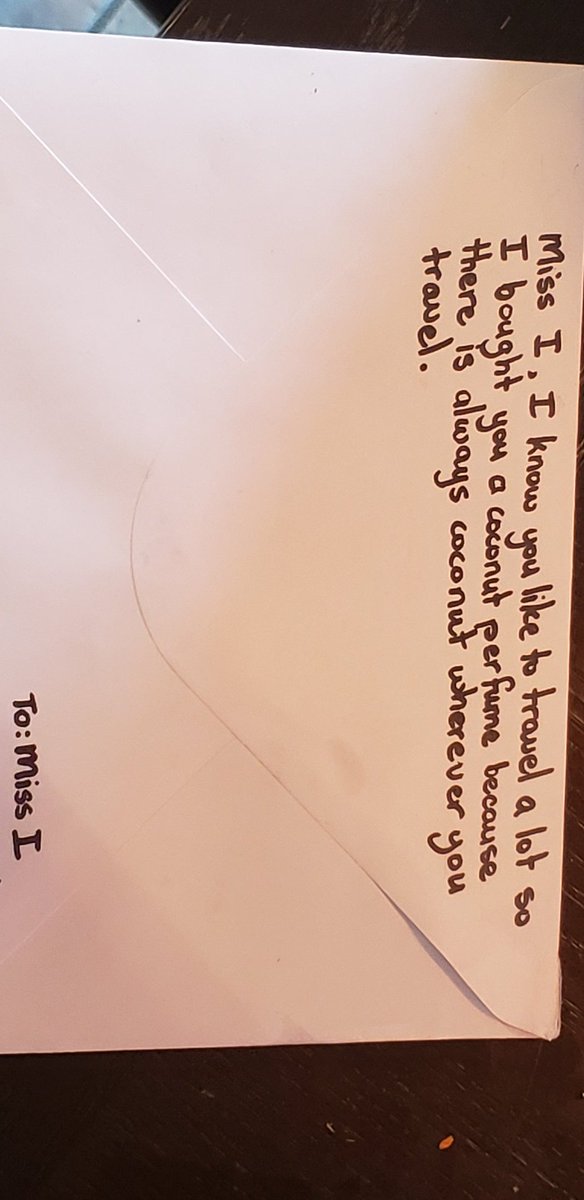 Miss I, I know you like to travel a lot so
I bought you a coconut perfume because
there is always coconut wherever you
travel.
To: Miss I